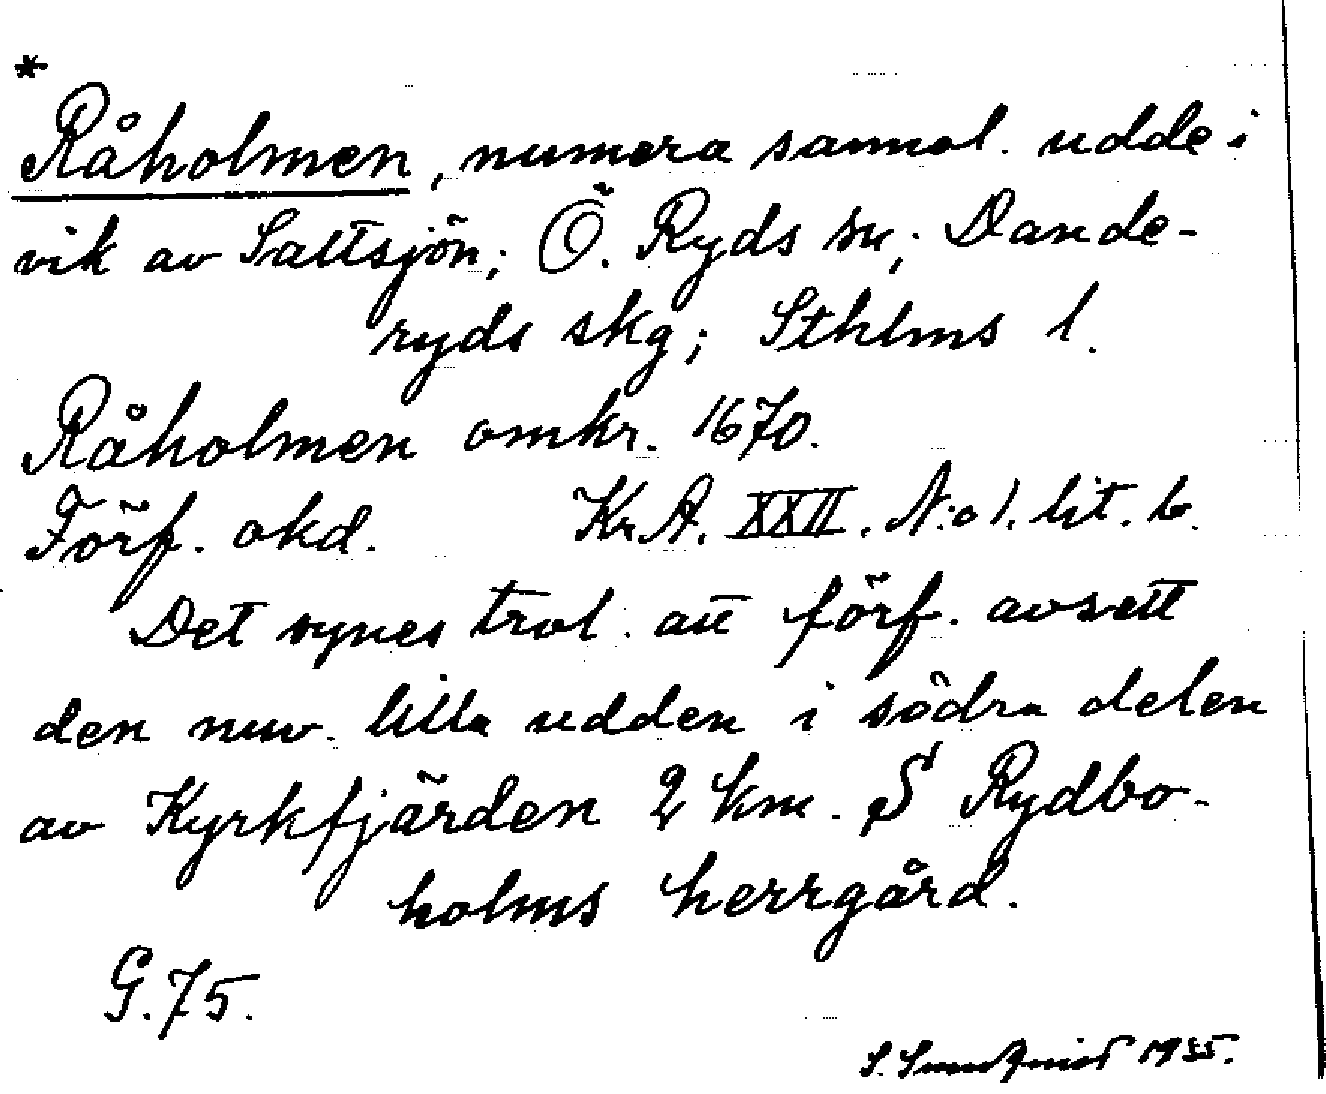 *
Råholmen, numera sannol. udde i
vik av Saltsjön; Ö. Ryds sn; Dande-
ryds skg; Sthlms l.
Råholmen omkr. 1670.
Förf. okd. Kr.A. XXII. N:o 1. lit. b.
Det synes trol. att förf. avsett
den nuv. lilla udden i södra delen
av Kyrkfjärden 2 km. S Rydbo-
holms herrgård.
G. 75.
S. Sundquist 1935.